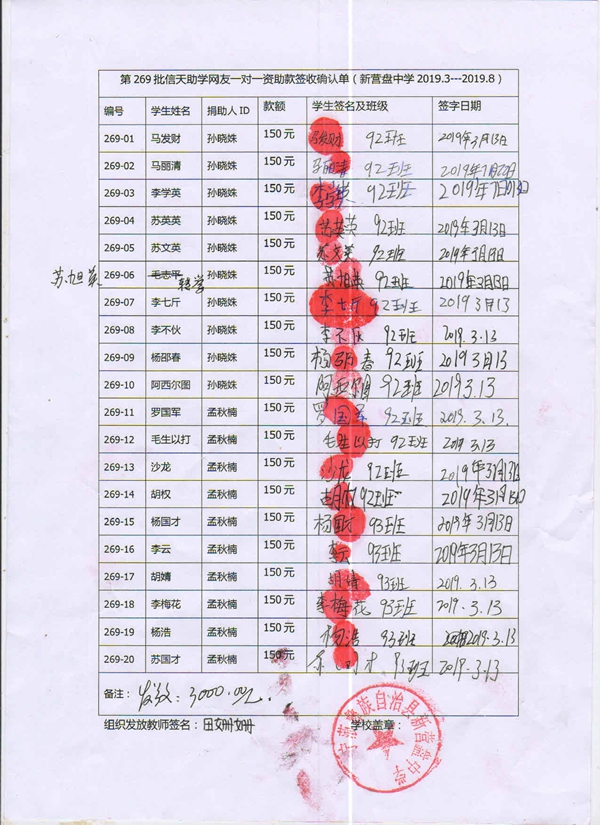 第269批信天助学网友一对一资助款签收确认单（新营盘中学2019.3---2019.8）
编号 学生姓名 捐助人ID 款额 学生签名及班级 签字日期
269-01 马发财 孙晓姝 150元 马发财 92班 2019年3月13日
269-02 马丽清 孙晓姝 150元 马丽清 92班
269-03 李学英 孙晓姝 150元 李学英 92班
269-04 苏英英 孙晓姝 150元 苏英英 92班 2019年3月13日
269-05 苏文英 孙晓姝 150元 苏文英 92班
苏旭英 269-06 毛志平 转学 孙晓姝 150元 苏旭英 92班 2019年3月13日
269-07 李七斤 孙晓姝 150元 李七斤 92班 2019 3月13
269-08 李不伙 孙晓姝 150元 李不伙 92班 2019.3.13
269-09 杨邵春 孙晓姝 150元 杨邵春 92班 2019年3月13
269-10 阿西尔图 孙晓姝 150元 阿西尔图 92班 2019 3.13
269-11 罗国军 孟秋楠 150元 罗国军 92班 2019.3.13
269-12 毛生以打 孟秋楠 150元 毛生以打 92班 2019 3.13
269-13 沙龙 孟秋楠 150元 沙龙 92班 2019年3月13日
269-14 胡权 孟秋楠 150元 胡权 92班 2019年3月13日
269-15 杨国才 孟秋楠 150元 杨国才 93班 2019年3月13日
269-16 李云 孟秋楠 150元 李云 93班 2019年3月13日
269-17 胡婧 孟秋楠 150元 胡婧 93班 2019.3.13
269-18 李梅花 孟秋楠 150元 李梅花 93班 2019.3.13
269-19 杨浩 孟秋楠 150元 杨浩 93班 2019.3.13
269-20 苏国才 孟秋楠 150元 93班 2019.3.13
备注： 发放：3000.00元
组织发放教师签名： 田姗姗 学校盖章：
宁蒗彝族自治县新营盘中学